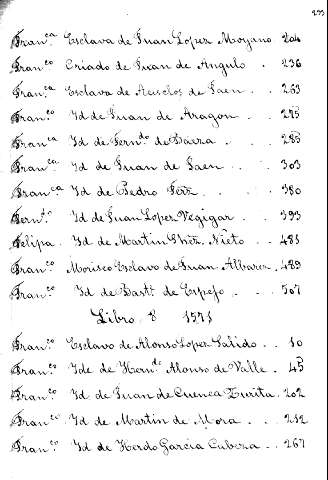 Fran.ca Esclava de Juan Lopez Moyano 204
Fran.co Criado de Juan de Angulo . 236
Fran.ca Esclava de de Jaen . . 263
Fran.co Id de Juan de Aragon . . . 275
Fran.ca Id de Fern.do de Baeza . . 285
Fran.ca Id de Juan de Jaen . . . 303
Fran.ca Id de Pedro . . . 380
Fern.do Id de Juan Lopez Vegigar . . 393
Felipa . Id de Martin Nieto . . 481
Fran.co Morisco Esclavo de Juan Albarez . 489
Fran.co Id de Bart.e de Espejo . . . 507
Libro 8 1571
Fran.co Esclavo de Alonso Lopez Salido . . 10
Fran.co Id de Hern.do Alonso de Valle . 45
Fran.co Id de Juan de Cuenca Zurita 202
Fran.co Id de Martin de Mora . . 212
Fran.co Id de Garcia Cubera . . 267